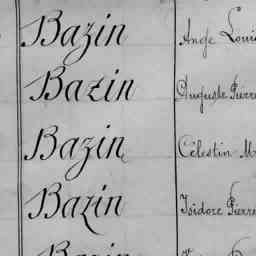 Bazin Ange Loui
Bazin Auguste Pierre
Bazin Célestin M
Bazin Isidore Pierre
Bazin